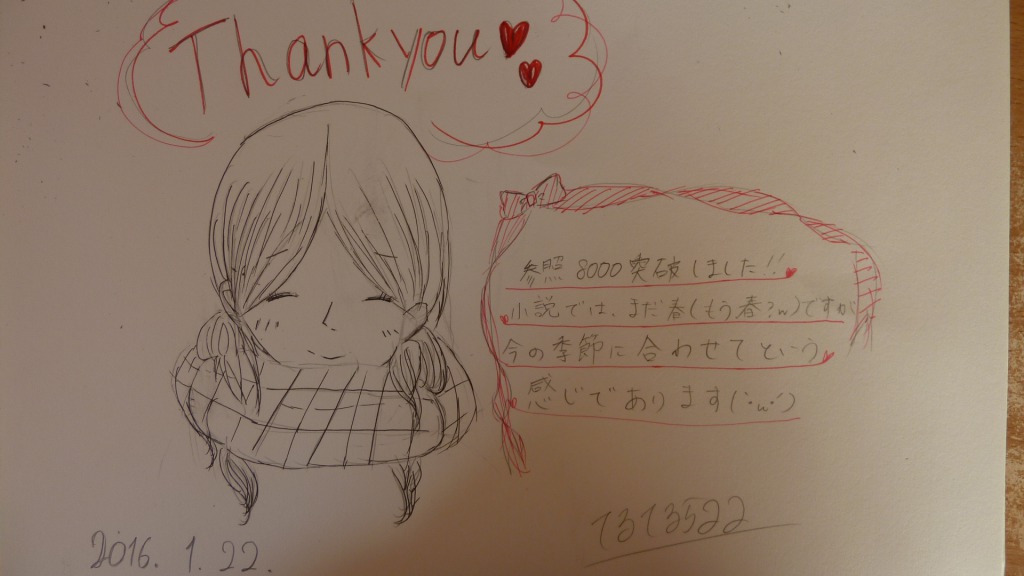 Thank you
参照 8000 突破しました!!
小説では、まだ春(もう春?w)ですが
今の季節に合わせてという
感じであります(´・ω・`)
2016. 1. 22.